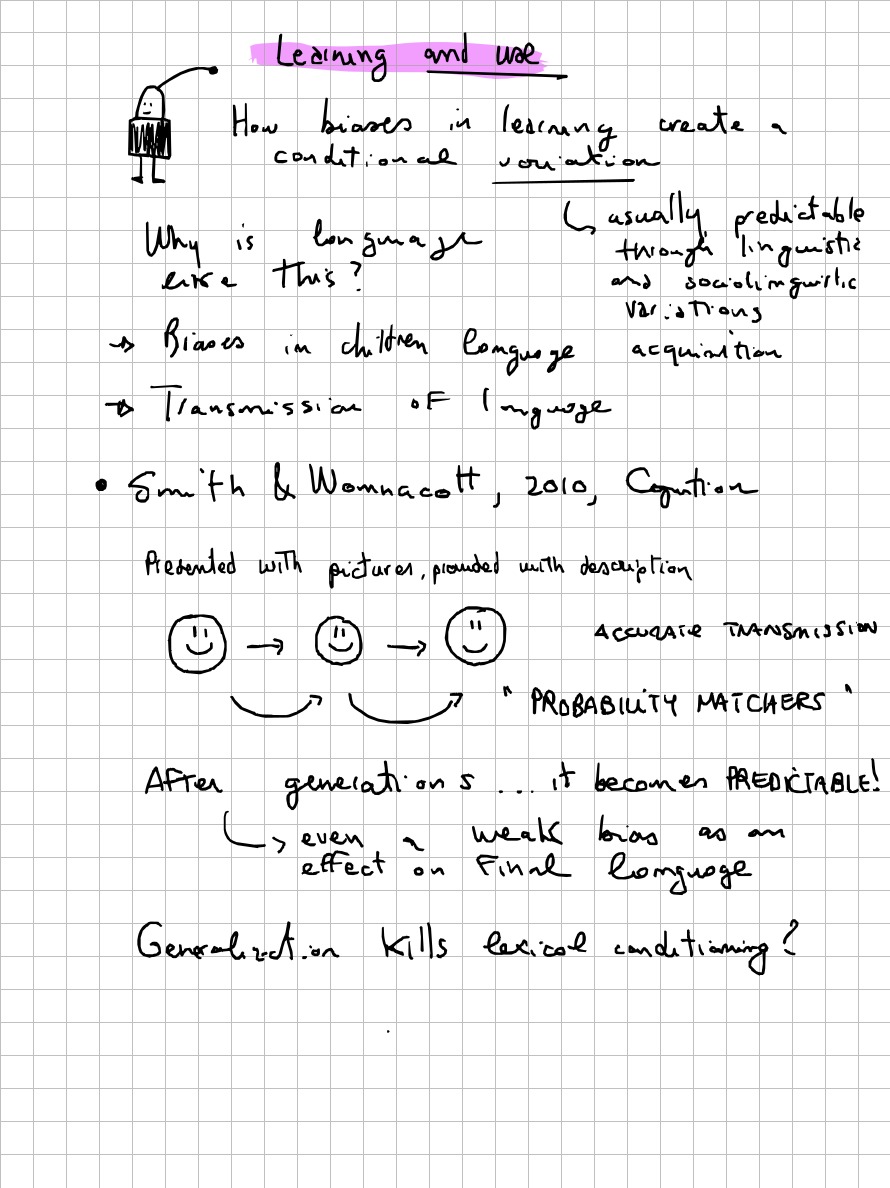 Learning and use
How biases in learning create a
conditional variation
usually predictable
through linguistic
and sociolinguistic
variations
Why is language
like this?
→ Biases in children language acquisition
→ Transmission of language
• Smith & Womnacott, 2010, Cognition
Presented with pictures, provided with description
ACCURATE TRANSMISSION
"PROBABILITY MATCHERS"
After generations ... it becomes PREDICTABLE!
even a weak bias as an
effect on final language
Generalization kills lexical conditioning?